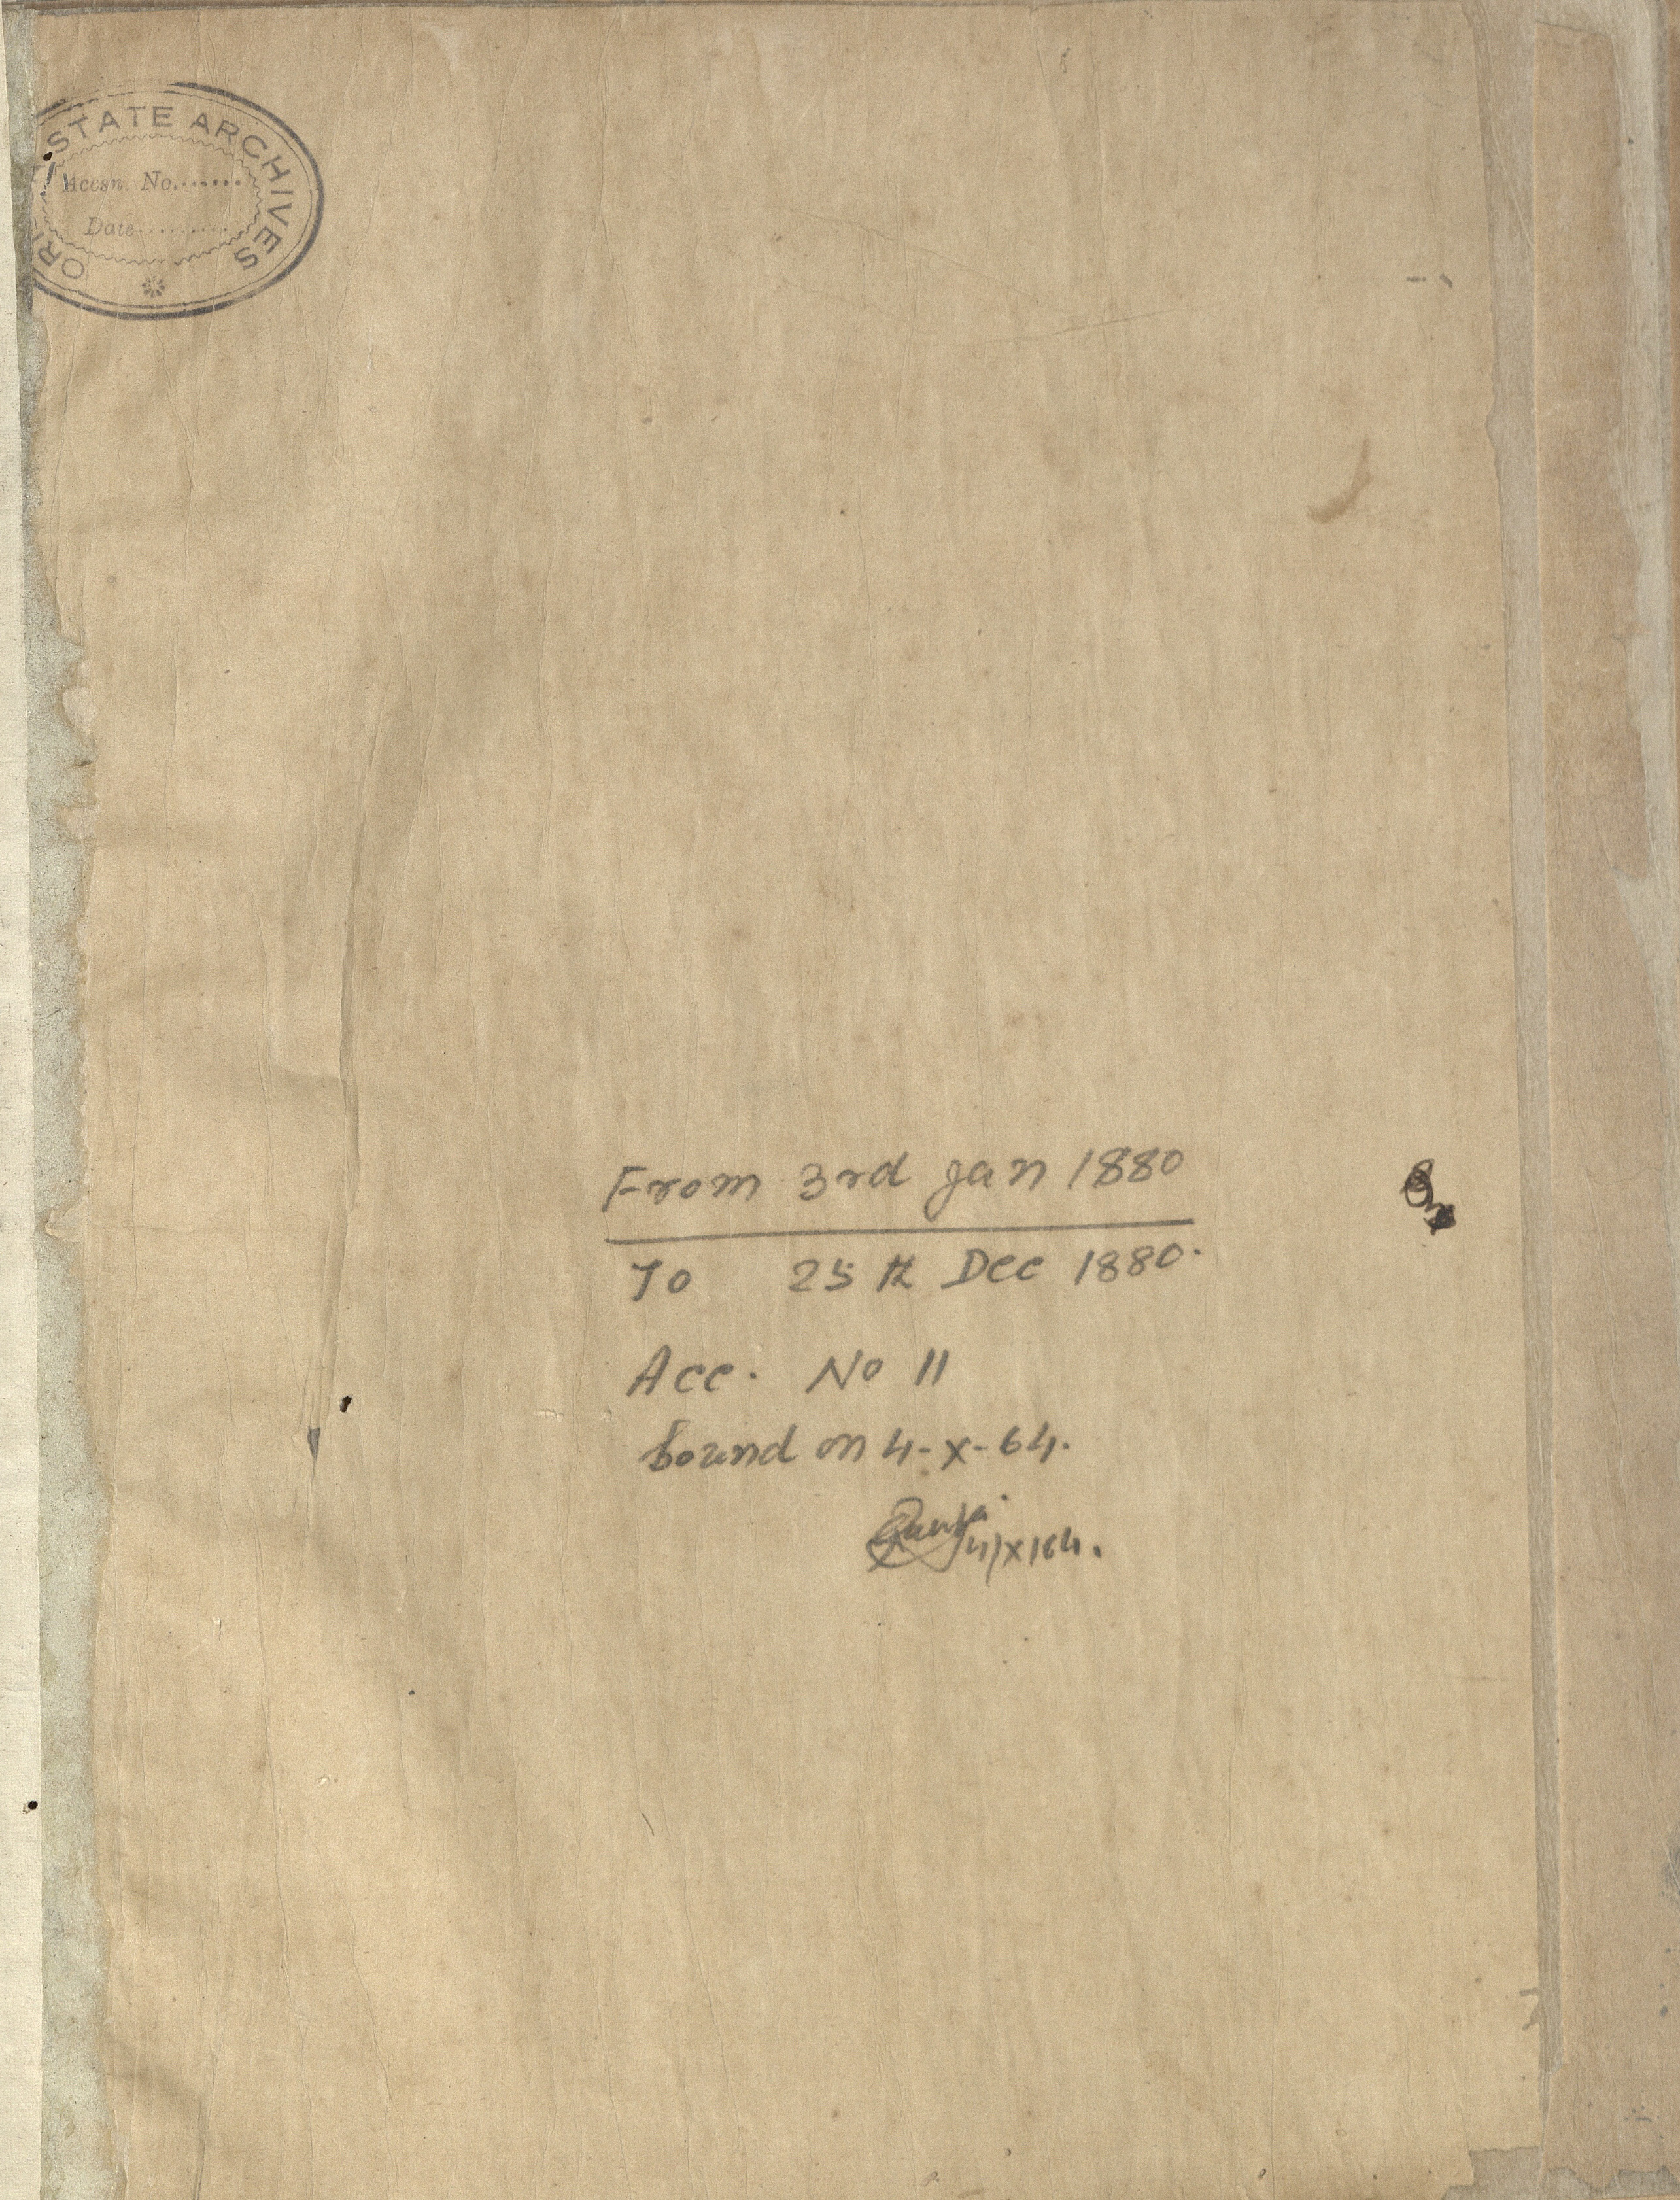 STATE ARCHIVES
Accsn. No.......
Date..........
From 3rd Jan 1880
To 25th Dec 1880.
Acc. No 11
bound on 4-X-64.
4/X/64.